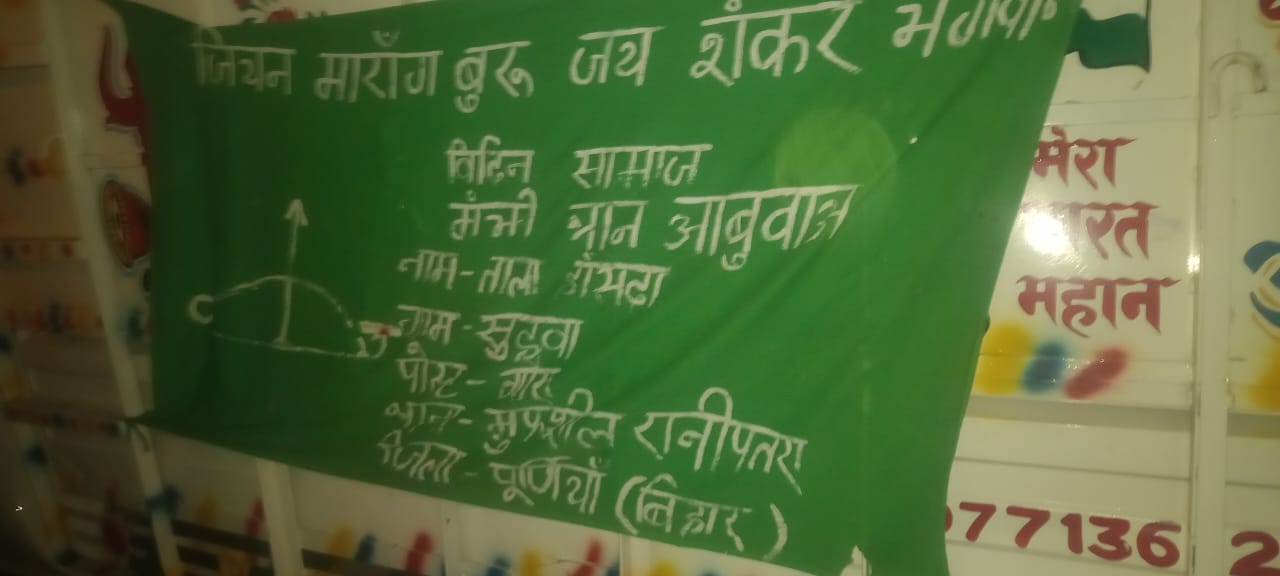 जियन माराँग बुरू जय शंकर भगवान
विदिन सामाज
मंच्ची ञान आबुवाअ
नाम-ताला
नाम-सुडवा
पोस्ट-
थाना-मुफ्शील रानीपतरा
जिला-पूर्णियाँ (बिहार)
मेरा
भारत
महान
077136
2